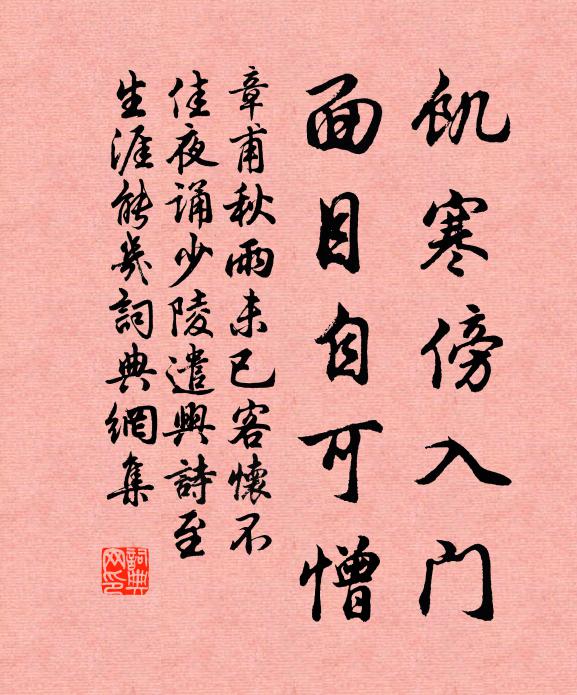 飢寒傍入門
面目自可憎
章甫秋雨未已客懷不
佳夜誦少陵遣興詩至
生涯能幾詞典網集
詞典
网印